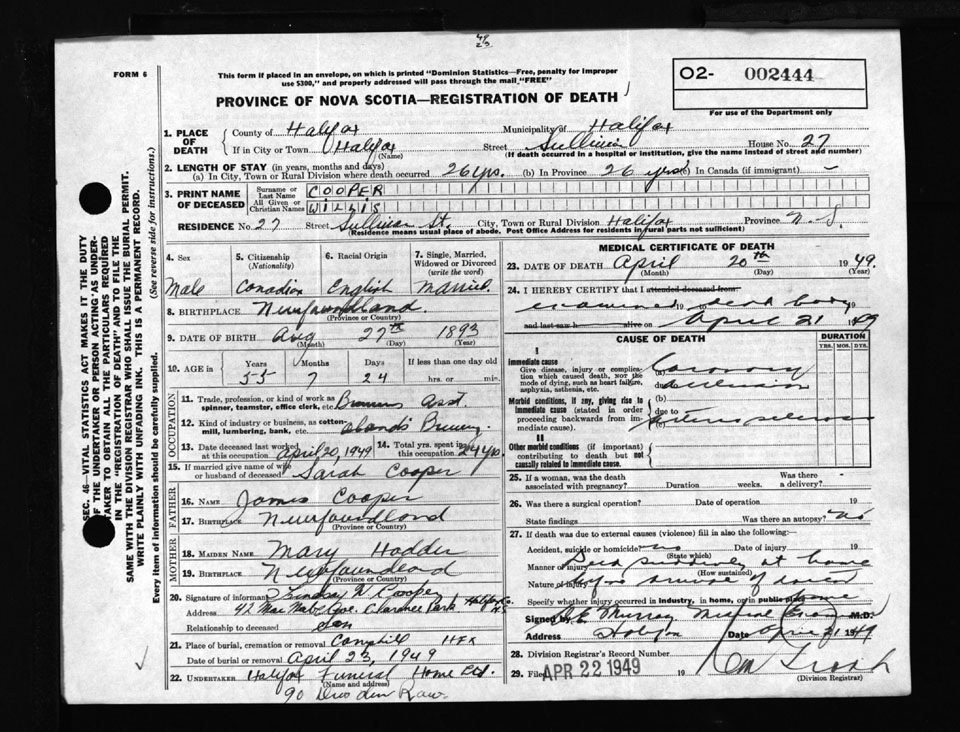 49
23
FORM 6
This form if placed in an envelope, on which is printed "Dominion Statistics—Free, penalty for improper
use $300," and properly addressed will pass through the mail "FREE"
PROVINCE OF NOVA SCOTIA—REGISTRATION OF DEATH
O2- 002444
For use of the Department only
1. PLACE OF DEATH County of Halifax Municipality of Halifax
If in City or Town Halifax (Name) Street Sullivan House No. 27
(If death occurred in a hospital or institution, give the name instead of street and number)
2. LENGTH OF STAY (in years, months and days)
(a) In City, Town or Rural Division where death occurred 26 yrs. (b) In Province 26 yrs (c) In Canada (if immigrant) -
3. PRINT NAME OF DECEASED Surname or Last Name COOPER
All Given or Christian Names WILLIS
RESIDENCE No. 27 Street Sullivan St. City, Town or Rural Division Halifax Province N.S.
(Residence means usual place of abode. Post Office Address for residents in rural parts not sufficient)
4. Sex Male
5. Citizenship (Nationality) Canadian
6. Racial Origin English
7. Single, Married, Widowed or Divorced (write the word) Married
8. BIRTHPLACE Newfoundland.
(Province or Country)
9. DATE OF BIRTH Aug 27th 1893
(Month) (Day) (Year)
10. AGE in Years 55 Months 7 Days 24 If less than one day old
hrs. or min.
OCCUPATION
11. Trade, profession, or kind of work as spinner, teamster, office clerk, etc. Brewers Asst.
12. Kind of industry or business, as cotton-mill, lumbering, bank, etc. Olands Brewery
13. Date deceased last worked at this occupation April 20, 1949
14. Total yrs. spent in this occupation 24 yrs
15. If married give name of wife or husband of deceased Sarah Cooper
FATHER
16. Name James Cooper
17. Birthplace Newfoundland
(Province or Country)
MOTHER
18. Maiden Name Mary Hodder
19. Birthplace Newfoundland
(Province or Country)
20. Signature of informant Lindsay W Cooper
Address 42 MacNab Ave. Clarence Park Halifax Co. N.S.
Relationship to deceased Son
21. Place of burial, cremation or removal Camphill HFX
Date of burial or removal April 23, 1949
22. Undertaker Halifax Funeral Home Ltd.
(Name and address)
90
MEDICAL CERTIFICATE OF DEATH
23. DATE OF DEATH April 20th 1949
(Month) (Day) (Year)
24. I HEREBY CERTIFY that I attended deceased from
examined 19 to dead body
and last saw h alive on April 21 1949
CAUSE OF DEATH
DURATION
YRS. MOS. DYS.
I
Immediate cause
Give disease, injury or complication which caused death, not the mode of dying, such as heart failure, asphyxia, asthenia, etc.
(a) Coronary
due to occlusion
Morbid conditions, if any, giving rise to immediate cause (stated in order proceeding backwards from immediate cause).
(b)
due to
(c) Arteriosclerosis
II
Other morbid conditions (if important) contributing to death but not causally related to immediate cause.
25. If a woman, was the death associated with pregnancy? Duration weeks. Was there a delivery? -
26. Was there a surgical operation? Date of operation 19
State findings Was there an autopsy? no
27. If death was due to external causes (violence) fill in also the following:
Accident, suicide or homicide? no Date of injury 19
(State which)
Manner of injury Died suddenly at home
(How sustained)
Nature of injury before arrival of doctor
Specify whether injury occurred in industry, in home, or in public place home
Signed by Murray Medical Exam M.D.
Address Halifax Date April 21 1949
28. Division Registrar's Record Number
29. Filed APR 22 1949 19
(Division Registrar)
SEC. 46—VITAL STATISTICS ACT MAKES IT THE DUTY
OF THE UNDERTAKER OR PERSON ACTING AS UNDER-
TAKER TO OBTAIN ALL THE PARTICULARS REQUIRED
IN THE "REGISTRATION OF DEATH" AND TO FILE THE
SAME WITH THE DIVISION REGISTRAR WHO SHALL ISSUE THE BURIAL PERMIT.
WRITE PLAINLY WITH UNFADING INK. THIS IS A PERMANENT RECORD.
Every item of information should be carefully supplied. (See reverse side for instructions.)